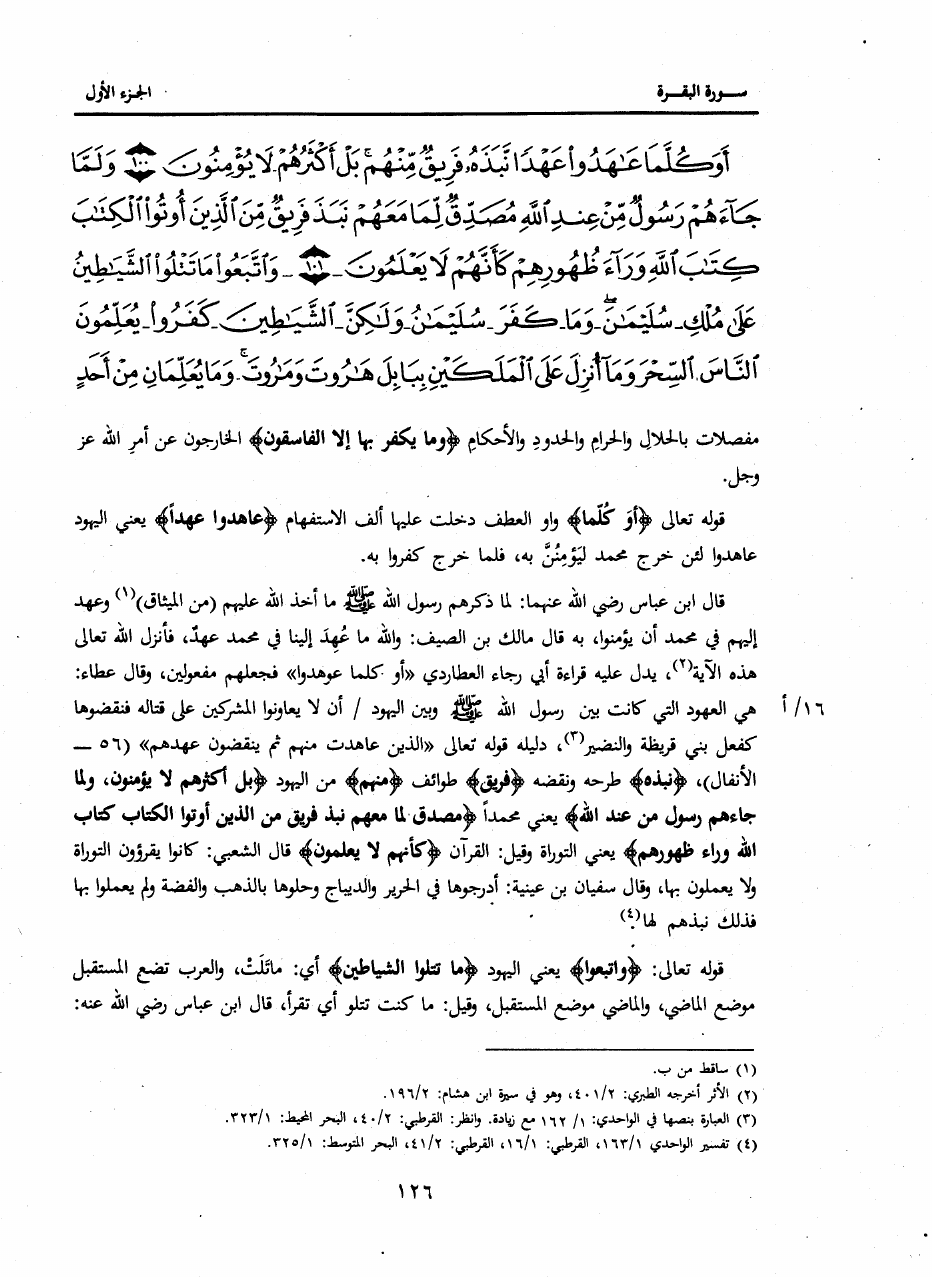 سورة البقرة
الجزء الأول
أَوَكُلَّمَا عَٰهَدُوا۟ عَهْدًا نَّبَذَهُۥ فَرِيقٌ مِّنْهُم ۚ بَلْ أَكْثَرُهُمْ لَا يُؤْمِنُونَ ١٠٠ وَلَمَّا
جَآءَهُمْ رَسُولٌ مِّنْ عِندِ ٱللَّهِ مُصَدِّقٌ لِّمَا مَعَهُمْ نَبَذَ فَرِيقٌ مِّنَ ٱلَّذِينَ أُوتُوا۟ ٱلْكِتَٰبَ
كِتَٰبَ ٱللَّهِ وَرَآءَ ظُهُورِهِمْ كَأَنَّهُمْ لَا يَعْلَمُونَ ١٠١ وَٱتَّبَعُوا۟ مَا تَتْلُوا۟ ٱلشَّيَٰطِينُ
عَلَىٰ مُلْكِ سُلَيْمَٰنَ ۖ وَمَا كَفَرَ سُلَيْمَٰنُ وَلَٰكِنَّ ٱلشَّيَٰطِينَ كَفَرُوا۟ يُعَلِّمُونَ
ٱلنَّاسَ ٱلسِّحْرَ وَمَآ أُنزِلَ عَلَى ٱلْمَلَكَيْنِ بِبَابِلَ هَٰرُوتَ وَمَٰرُوتَ ۚ وَمَا يُعَلِّمَانِ مِنْ أَحَدٍ
مفصلات بالحلالِ والحرامِ والحدودِ والأحكامِ ﴿وما يكفر بها إلا الفاسقون﴾ الخارجون عن أمرِ الله عز
وجل.
قوله تعالى ﴿أوَ كُلّما﴾ واو العطف دخلت عليها ألف الاستفهام ﴿عاهدوا عهداً﴾ يعني اليهود
عاهدوا لئن خرج محمد ليَؤمِنُنَّ به، فلما خرج كفروا به.
قال ابن عباس رضي الله عنهما: لما ذكرهم رسول الله ﷺ ما أخذ الله عليهم (من الميثاق)(١) وعهد
إليهم في محمد أن يؤمنوا، به قال مالك بن الصيف: والله ما عُهِدَ إلينا في محمد عهدٌ، فأنزل الله تعالى
هذه الآية(٢)، يدل عليه قراءة أبي رجاء العطاردي «أو كلما عوهدوا» فجعلهم مفعولين، وقال عطاء:
هي العهود التي كانت بين رسول الله ﷺ وبين اليهود / أن لا يعاونوا المشركين على قتاله فنقضوها
١٦/ أ
كفعل بني قريظة والنضير(٣)، دليله قوله تعالى «الذين عاهدت منهم ثم ينقضون عهدهم» (٥٦ —
الأنفال)، ﴿نبذه﴾ طرحه ونقضه ﴿فريق﴾ طوائف ﴿منهم﴾ من اليهود ﴿بل أكثرهم لا يؤمنون، ولما
جاءهم رسول من عند الله﴾ يعني محمداً ﴿مصدق لما معهم نبذ فريق من الذين أوتوا الكتاب كتاب
الله وراء ظهورهم﴾ يعني التوراة وقيل: القرآن ﴿كأنهم لا يعلمون﴾ قال الشعبي: كانوا يقرؤون التوراة
ولا يعملون بها، وقال سفيان بن عينية: أدرجوها في الحرير والديباج وحلوها بالذهب والفضة ولم يعملوا بها
فذلك نبذهم لها(٤).
قوله تعالى: ﴿واتبعوا﴾ يعني اليهود ﴿ما تتلوا الشياطين﴾ أي: ماتَلَتْ، والعرب تضع المستقبل
موضع الماضي، والماضي موضع المستقبل، وقيل: ما كنت تتلو أي تقرأ، قال ابن عباس رضي الله عنه:
(١) ساقط من ب.
(٢) الأثر أخرجه الطبري: ٤٠١/٢، وهو في سيرة ابن هشام: ١٩٦/٢.
(٣) العبارة بنصها في الواحدي: ١/ ١٦٢ مع زيادة. وانظر: القرطبي: ٤٠/٢، البحر المحيط: ٣٢٣/١.
(٤) تفسير الواحدي ١٦٣/١، القرطبي: ١٦/١، القرطبي: ٤١/٢، البحر المتوسط: ٣٢٥/١.
١٢٦